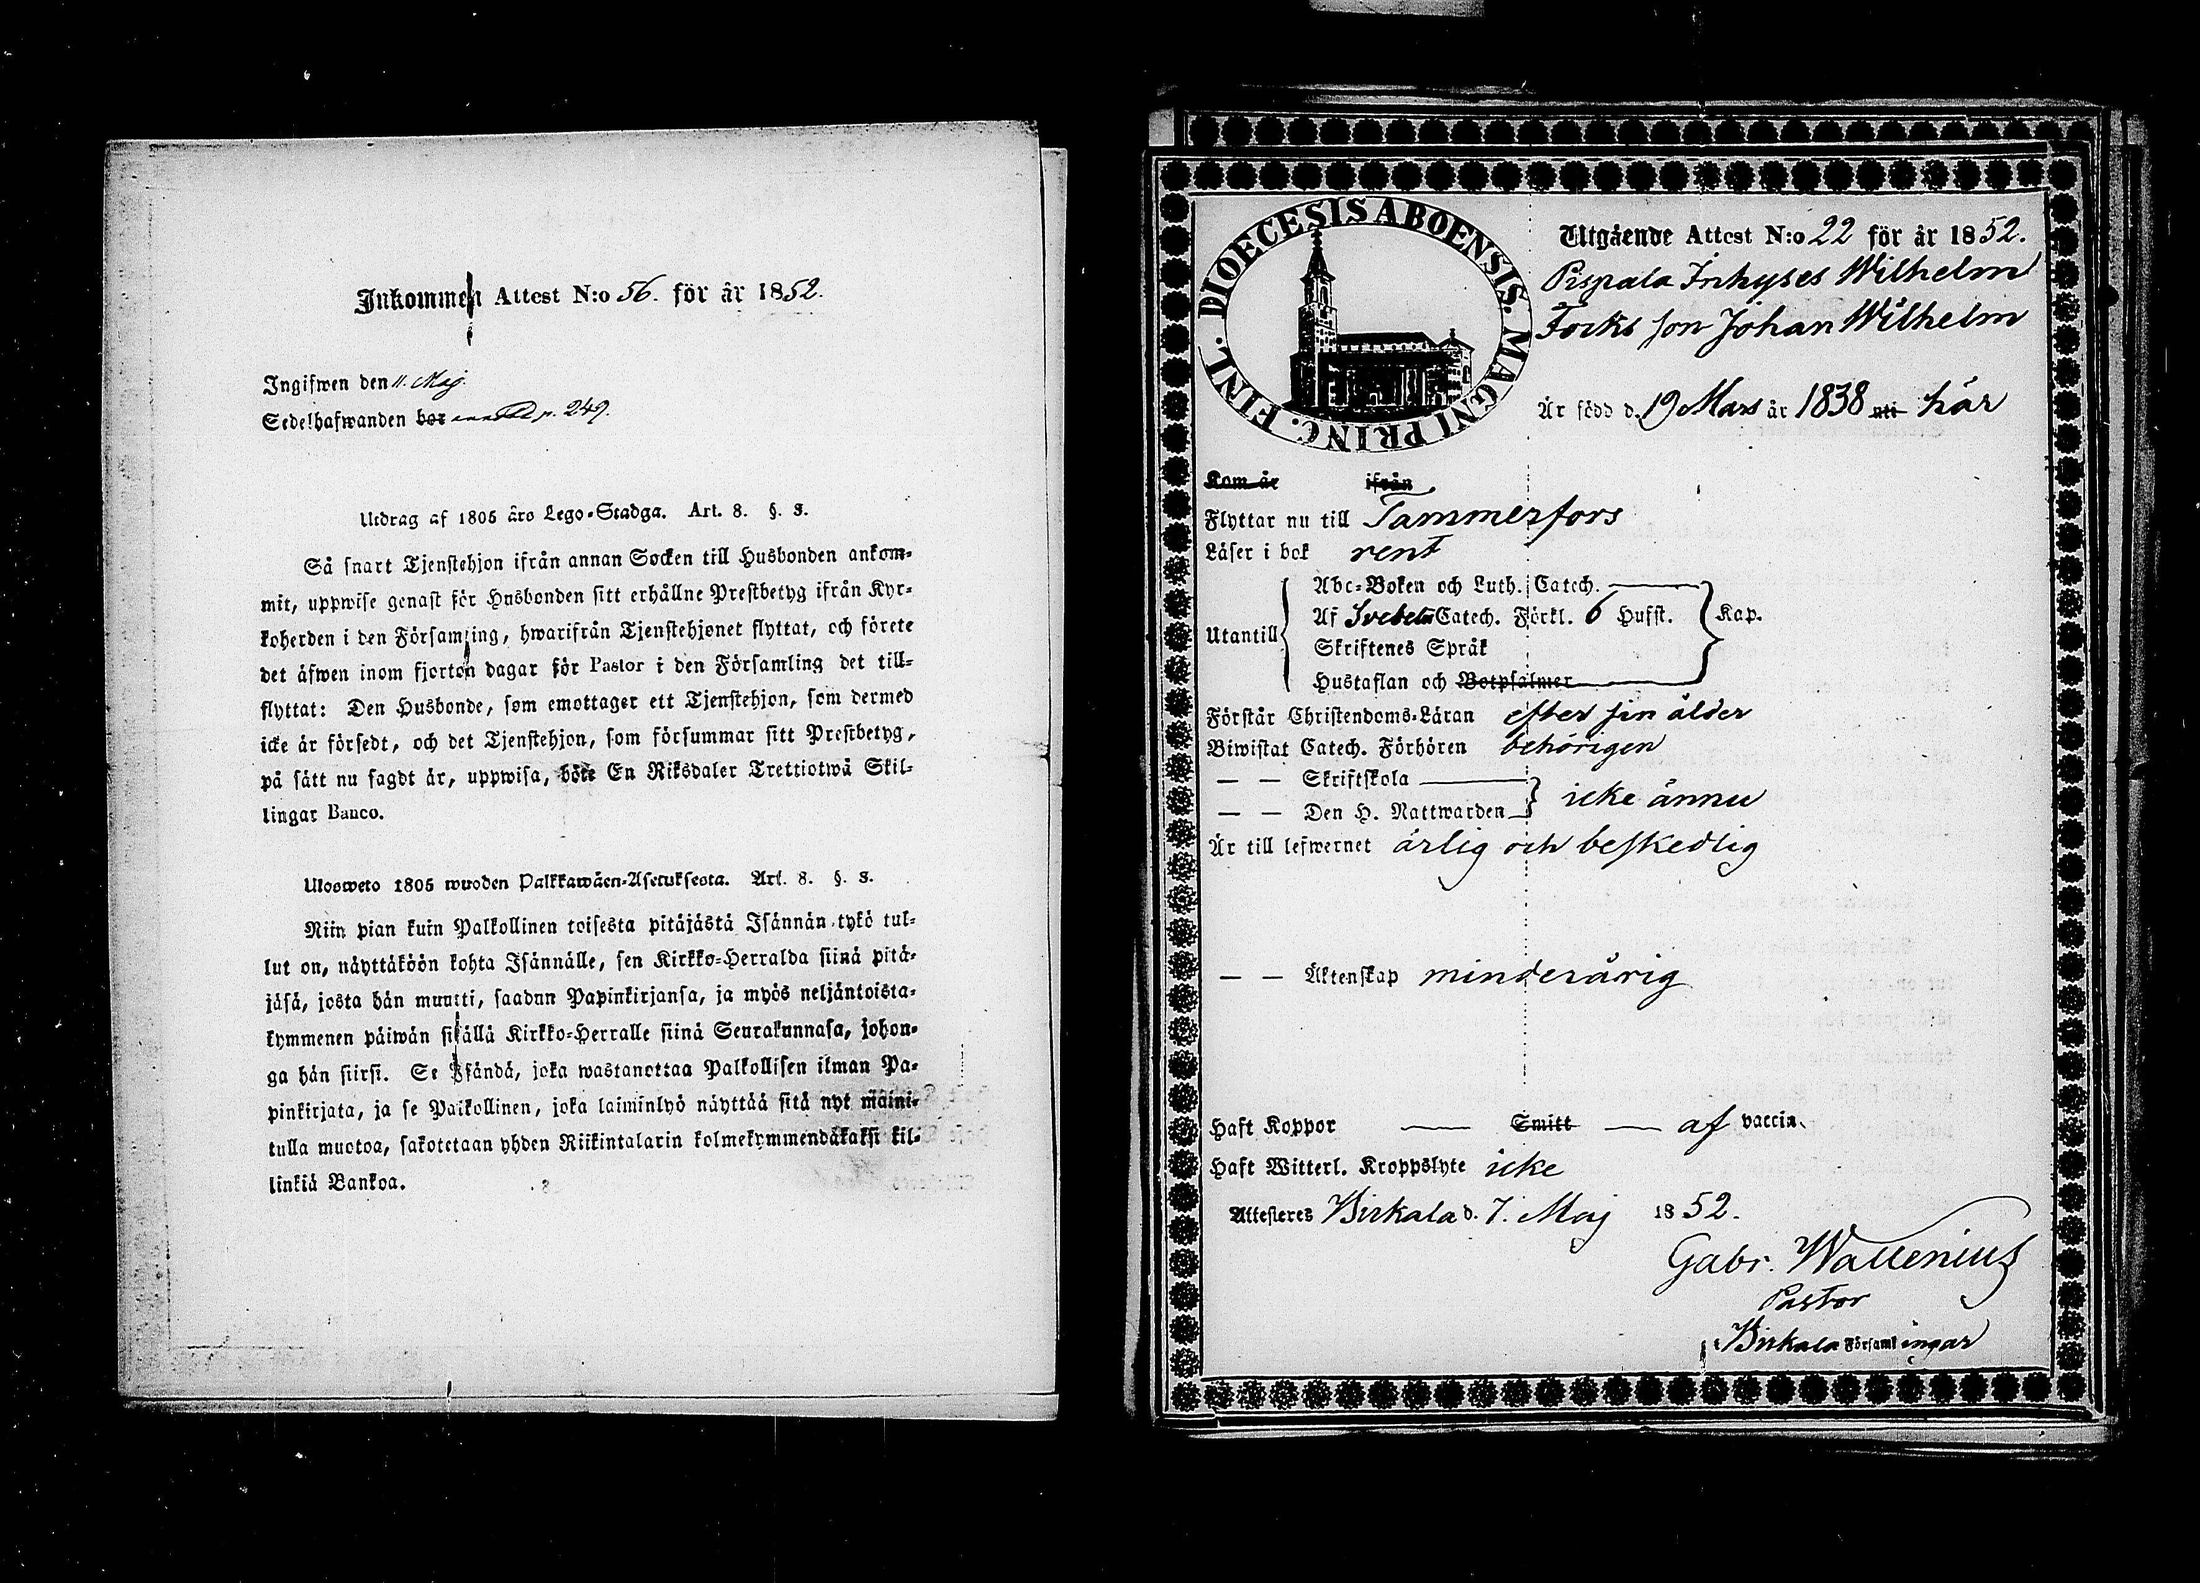 Inkommen Attest N:o 56. för år 1852.
Ingifwen den 11. Maj.
Sedelhafwanden bor p. 249.
Utdrag af 1805 års Lego-Stadga. Art. 8. §. 8.
Så snart Tjenstehjon ifrån annan Socken till Husbonden ankom-
mit, uppwise genast för Husbonden sitt erhållne Prestbetyg ifrån Kyr-
koherden i den Församling, hwarifrån Tjenstehjonet flyttat, och förete
det äfwen inom fjorton dagar för Pastor i den Församling det till-
flyttat: Den Husbonde, som emottager ett Tjenstehjon, som dermed
icke är försedt, och det Tjenstehjon, som försummar sitt Prestbetyg,
på sätt nu sagdt är, uppwisa, böte En Riksdaler Trettiotwå Skil-
lingar Banco.
Ulosweto 1805 wuoden Palkkawäen-Asetuksesta. Art. 8. §. 8.
Niin pian kuin Palkollinen toisesta pitäjästä Isännän tykö tul-
lut on, näyttäköön kohta Isännälle, sen Kirkko-Herralda siinä pitä-
jäsä, josta hän muutti, saadun Papinkirjansa, ja myös neljäntoista-
kymmenen päiwän sisällä Kirkko-Herralle siinä Seurakunnasa, johon-
ga hän siirsi. Se Isändä, joka wastanottaa Palkollisen ilman Pa-
pinkirjata, ja se Palkollinen, joka laiminlyö näyttää sitä nyt maini-
tulla muotoa, sakotetaan yhden Riikintalarin kolmekymmendäkaksi kil-
linkiä Bankoa.
DIOECESIS ABOENSIS. MAGNI PRINC. FINL.
Utgående Attest N:o 22 för år 1852.
Pispala Inhyses Wilhelm
Forks son Johan Wilhelm
Är född d. 19 Mars år 1838 uti här
Kom år ifrån
Flyttar nu till Tammerfors
Läser i bok rent
Utantill
Abc-Boken och Luth. Catech.
Af Svebeln Catech. Förkl. 6 Hufst. Kap.
Skriftenes Språk
Hustaflan och Botpsalmer
Förstår Christendoms-Läran efter sin ålder
Biwistat Catech. Förhören behörigen
— — Skriftskola
— — Den H. Nattwarden icke ännu
Är till lefwernet ärlig och beskedlig
— — Äktenskap minderårig
Haft Koppor — Smitt — af vaccin.
Haft Witterl. Kroppslyte icke
Attesteres Birkala d. 7. Maj 1852.
Gabr. Wallenius
Pastor
i Birkala Församl ingar